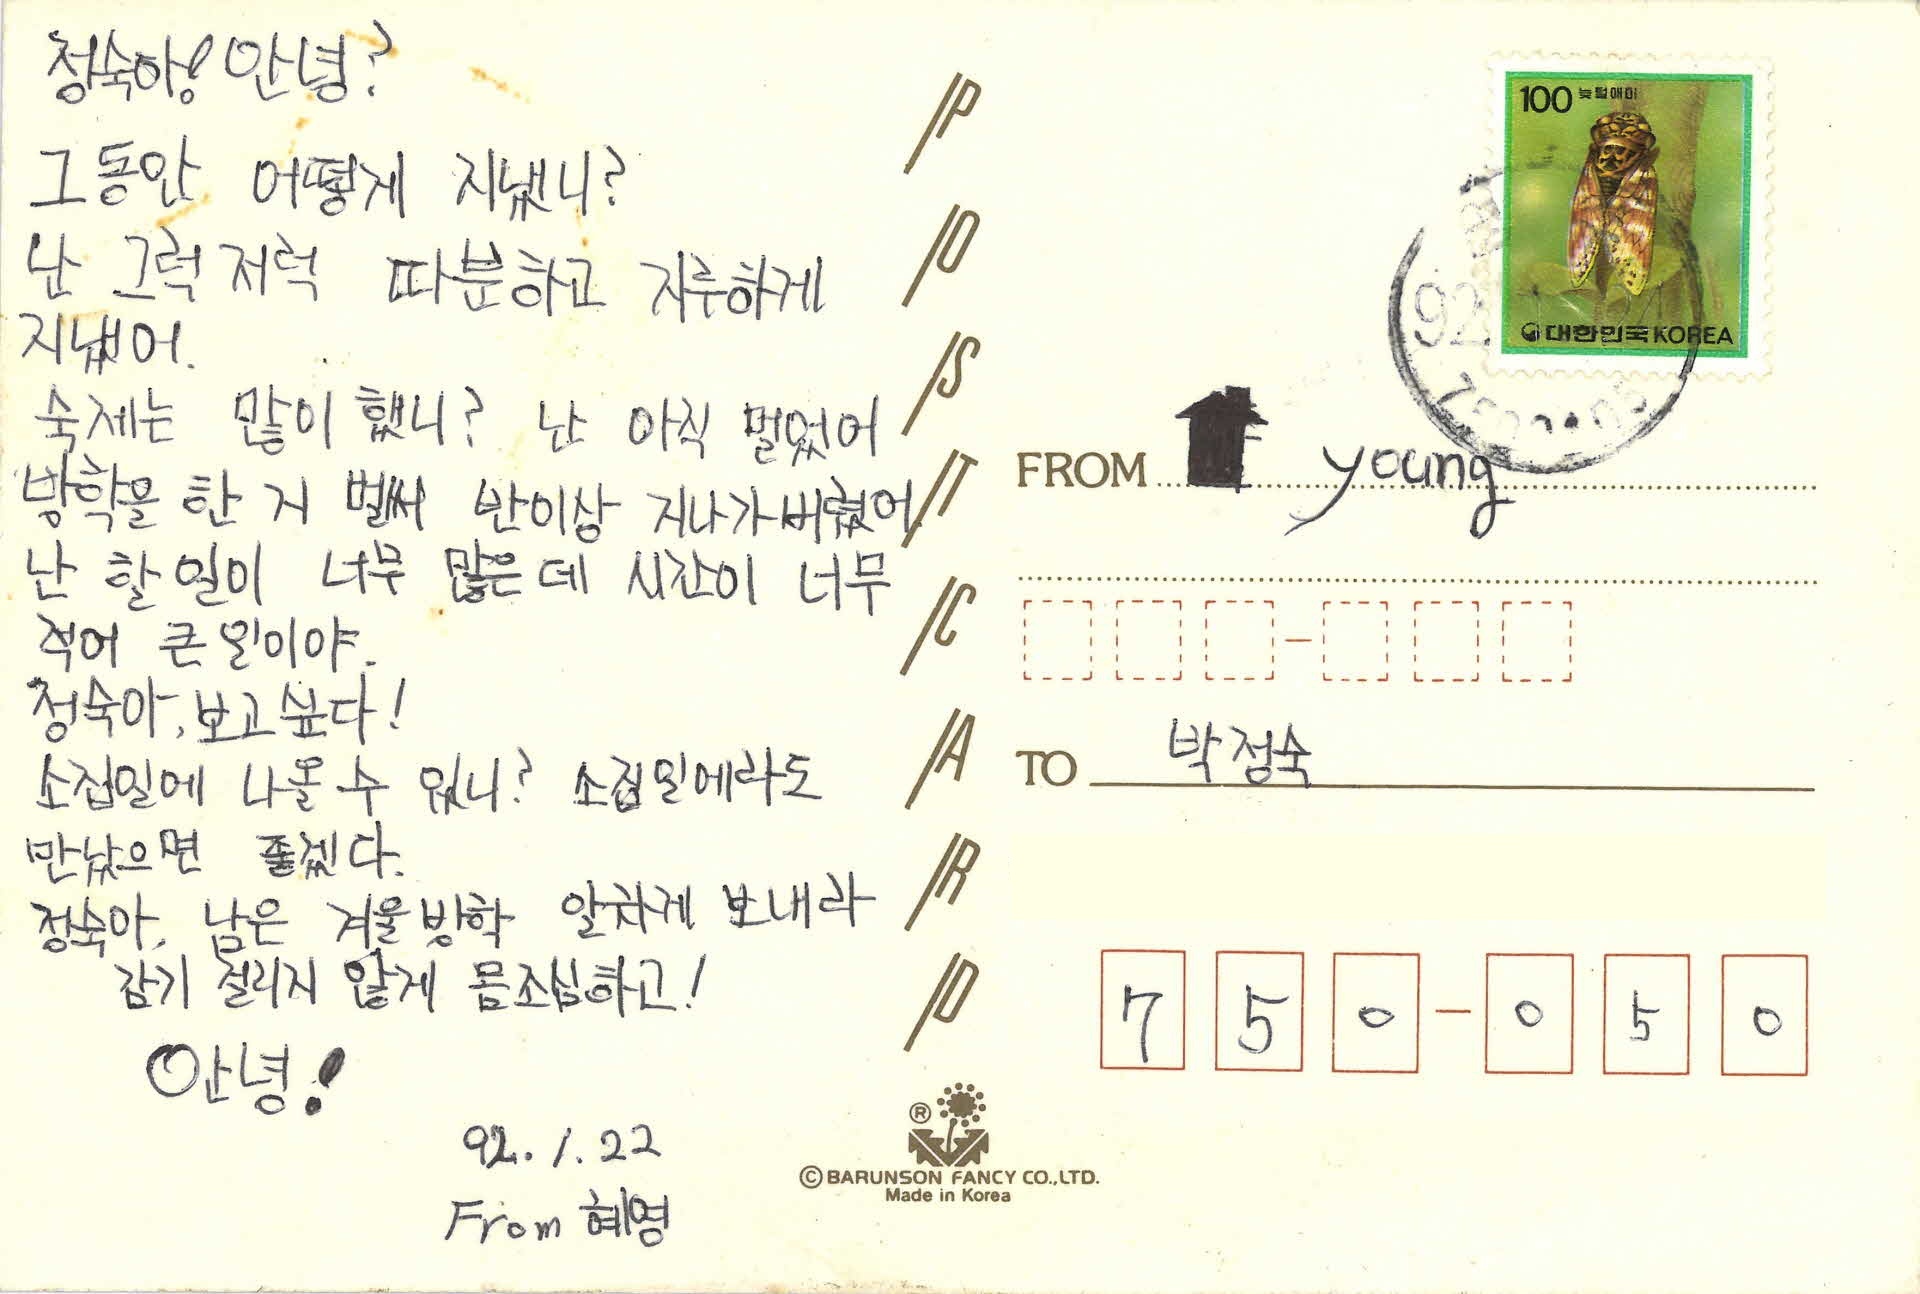 정숙아! 안녕?
그동안 어떻게 지냈니?
난 그럭저럭 따분하고 지루하게
지냈어.
숙제는 많이 했니? 난 아직 멀었어
방학을 한 지 벌써 반이상 지나가버렸어.
난 할 일이 너무 많은데 시간이 너무
적어 큰일이야.
정숙아, 보고싶다!
소집일에 나올 수 있니? 소집일에라도
만났으면 좋겠다.
정숙아, 남은 겨울방학 알차게 보내라
감기 걸리지 않게 몸조심하고!
안녕!
92. 1. 22
From 혜영
POSTCARD
® 
© BARUNSON FANCY CO.,LTD.
Made in Korea
100 늦털매미
대한민국 KOREA
92
FROM young
TO 박정숙
750-050